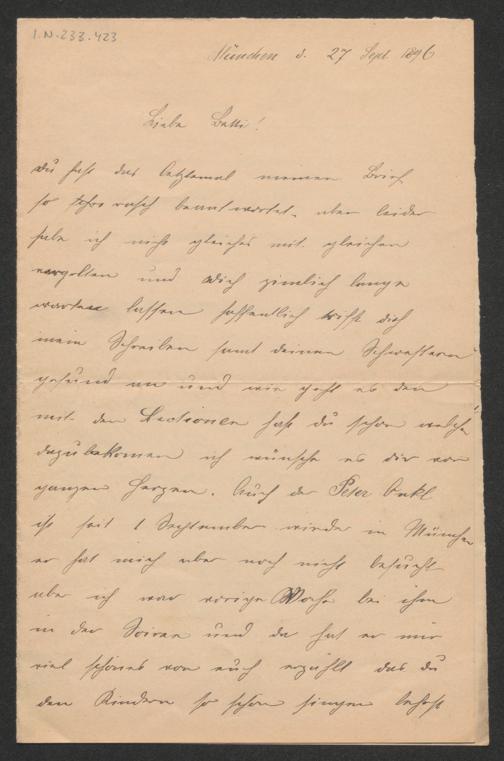 I.N. 233.423
München d. 27 Sept 1896
Liebe Betti!
Du hast das letztemal meinen Brief
so schon rasch beantwortet. aber leider
habe ich nicht gleiches mit gleichen
vergolten und dich ziemlich lange
warten lassen hoffentlich trifft dich
mein Schreiben samt deinen Schwestern
gesund an und wie geht es den
mit den Lectionen hast du schon welche
dazubekommen ich wünsche es dir von
ganzen Herzen. Auch der Peter Onkl
ist seit 1 September wieder in München
er hat mich aber noch nicht besucht
aber ich war vorige Woche bei ihm
in der Soiree und da hat er mir
viel schönes von euch erzählt das du
den Kindern so schön singen lehrst